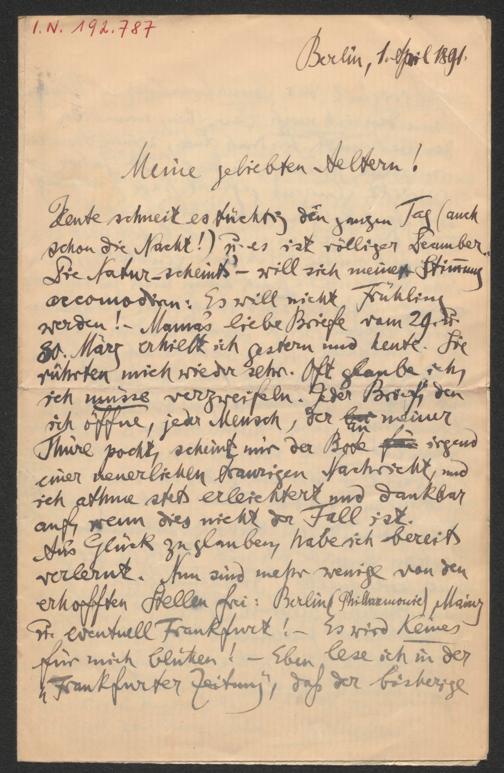 I.N. 192.787
Berlin, 1. April 1891.
Meine geliebten Aeltern!
Heute schneit es tüchtig den ganzen Tag (auch
schon die Nacht!) u. es ist völliger Dezember.
Die Natur – scheint's – will sich meiner Stimmung
accomodiren: Es will nicht Frühling
werden! – Mama's liebe Briefe vom 29. u.
30. März erhielt ich gestern und heute. Sie
rührten mich wieder sehr. Oft glaube ich,
ich müsse verzweifeln. Jeder Brief, den
ich öffne, jeder Mensch, der an meiner
Thüre pocht, scheint mir der Bote irgend
einer neuerlichen traurigen Nachricht, und
ich athme stets erleichtert und dankbar
auf, wenn dies nicht der Fall ist.
Aus Glück zu glauben, habe ich bereits
verlernt. Nun sind mehr wenige von den
erhofften Stellen frei: Berlin (Philharmonie), Mainz
u. eventuell Frankfurt! – Es wird Keines
für mich blühen! – Eben lese ich in der
"Frankfurter Zeitung", daß der bisherige